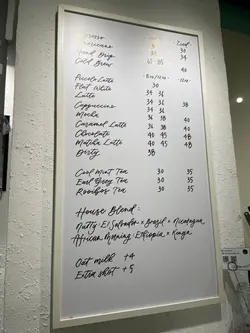 Espresso
Americano 30 Iced
Hand Drip 30
Cold Brew 34
Piccolo Latte
Flat White 30
Latte 34 36
Cappuccino 34 36
Mocha 34 36 38
Caramel Latte 36 38 40
Chocolate 40 45 48
Matcha Latte 40 45 48
Dirty 38
Cool Mint Tea 30 35
Earl Grey Tea 30 35
Rooibos Tea 30 35
House Blend:
Nutty: El Salvador × Brazil × Nicaragua
African Morning: Ethiopia × Kenya
Oat milk +4
Extra shot +5